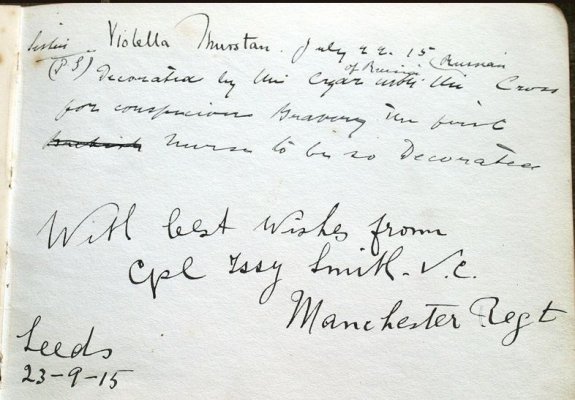 Sister Violetta Thurstan. July 22. 15
of Russia Russian
(P S) Decorated by the Czar with the Cross
for conspicuous Bravery the first
British Nurse to be so Decorated
With best Wishes from
Cpl Issy Smith. V.C.
Manchester Regt
Leeds
23-9-15